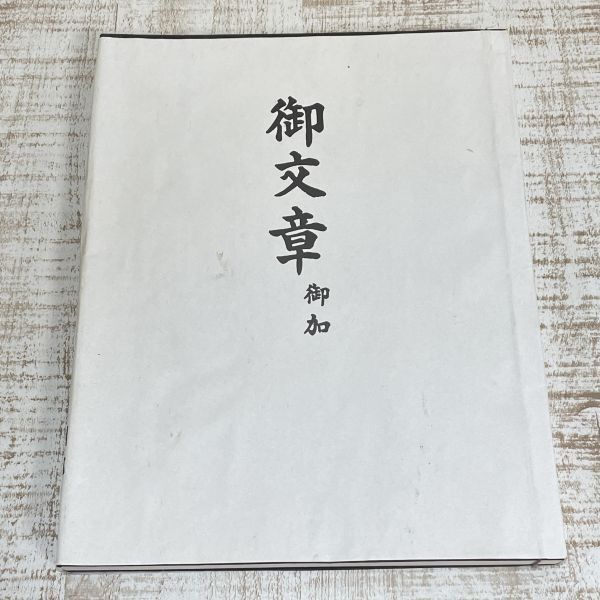 御文章
御加